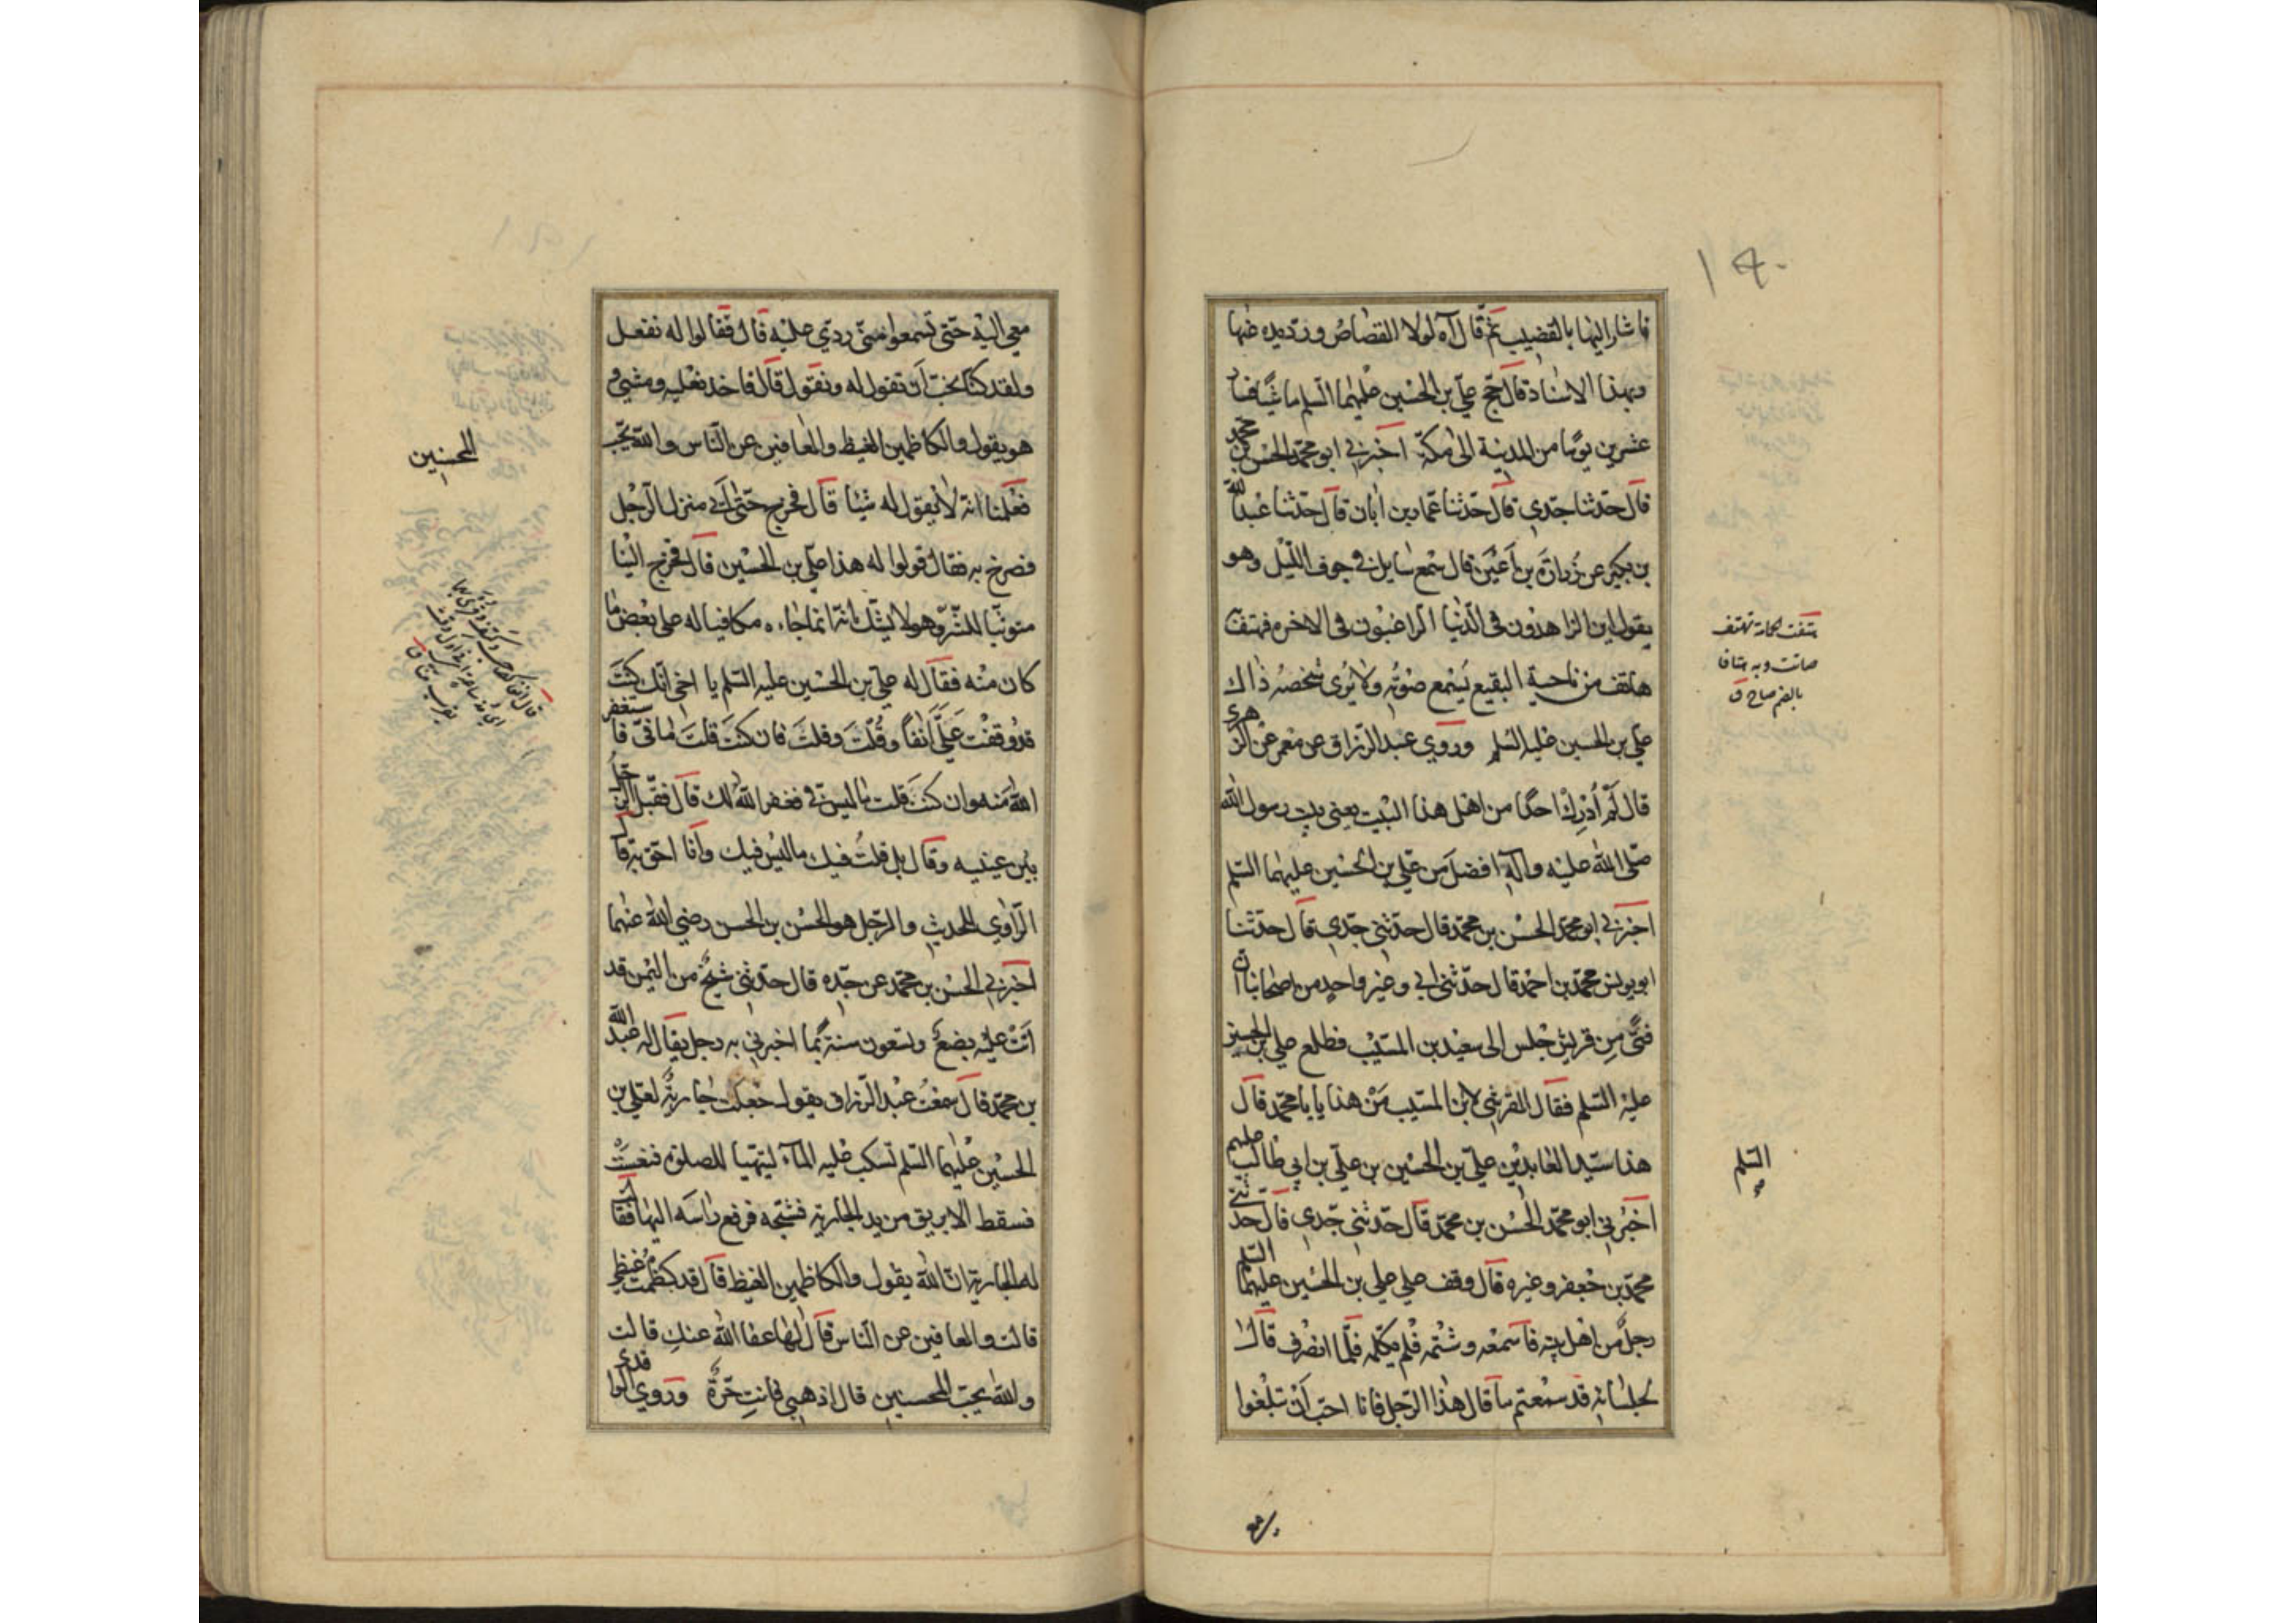 ١٩٠
فاشار اليها بالقضيب ثم قال آه لولا القصاص وردّ يده عنها
وبهذا الاسناد قال حج علي بن الحسين عليهما السلم ماشيا فسار
عشرين يوما من المدينة الى مكة اخبرني ابو محمد الحسن بن محمد
قال حدثنا جدي قال حدثنا عمار بن ابان قال حدثنا عبد الله
بن بكير عن زرارة بن اعين قال سمع سايل في جوف الليل وهو
يقول اين الزاهدون في الدنيا الراغبون في الاخره فهتف
هاتف من ناحية البقيع يسمع صوته ولا يرى شخصه ذاك
علي بن الحسين عليه السلم وروي عبد الرزاق عن معمر عن الزهري
قال لم أدرك احدا من اهل هذا البيت يعني بيت رسول الله
صلى الله عليه وآله افضل من علي بن الحسين عليهما السلم
اخبرني ابو محمد الحسن بن محمد قال حدثني جدي قال حدثنا
ابو يونس محمد بن احمد قال حدثني ابي وغير واحد من اصحابنا ان
فتى من قريش جلس الى سعيد بن المسيب فطلع علي بن الحسين
عليه السلم فقال القرشي لابن المسيب من هذا يا با محمد قال
هذا سيد العابدين علي بن الحسين بن علي بن ابي طالب عليهم
السلم
اخبرني ابو محمد الحسن بن محمد قال حدثني جدي قال حدثني
محمد بن جعفر وغيره قال وقف على علي بن الحسين عليهما السلم
رجل من اهل بيته فاسمعه وشتمه فلم يكلمه فلما انصرف قال
لجلسائه قد سمعتم ما قال هذا الرجل فانا احب أن تبلغوا
هتفت الحمامة تهتف
صاتت وبه هتافا
بالضم صاح ق
معي اليه حتى تسمعوا مني ردي عليه قال فقالوا له نفعل
ولقد كنا نحب أن تقول له ونقول قال فاخذ نعليه ومشي و
هو يقول والكاظمين الغيظ والعافين عن الناس والله يحب
المحسنين
فعلمنا انه لا يقول له شيئا قال فخرج حتى أتى منزل الرجل
فصرخ به فقال قولوا له هذا علي بن الحسين قال فخرج الينا
متوثبا للشر وهو لا يشك انه انما جاءه مكافيا له على بعض ما
كان منه فقال له علي بن الحسين عليه السلم يا اخي انك كنت
قد وقفت علي آنفا وقلت وقلت فان كنت قلت ما في فاستغفر
الله منه وان كنت قلت ما ليس في فغفر الله لك قال فقبل الرجل
بين عينيه وقال بل قلت فيك ما ليس فيك وانا احق به قال
الراوي للحديث والرجل هو الحسن بن الحسن رضي الله عنهما
اخبرني الحسن بن محمد عن جده قال حدثني شيخ من اليمن قد
أتت عليه بضع وتسعون سنة بما اخبرني به رجل يقال له عبد الله
بن محمد قال سمعت عبد الرزاق يقول جعلت جارية لعلي بن
الحسين عليهما السلم تسكب عليه الماء ليتهيا للصلوة فنعست
فسقط الابريق من يد الجارية فشجه فرفع راسه اليها فقالت
له الجارية ان الله يقول والكاظمين الغيظ قال قد كظمت غيظي
قالت والعافين عن الناس قال لها عفا الله عنك قالت
والله يحب المحسنين قال اذهبي فانت حرة وروي الواقدي